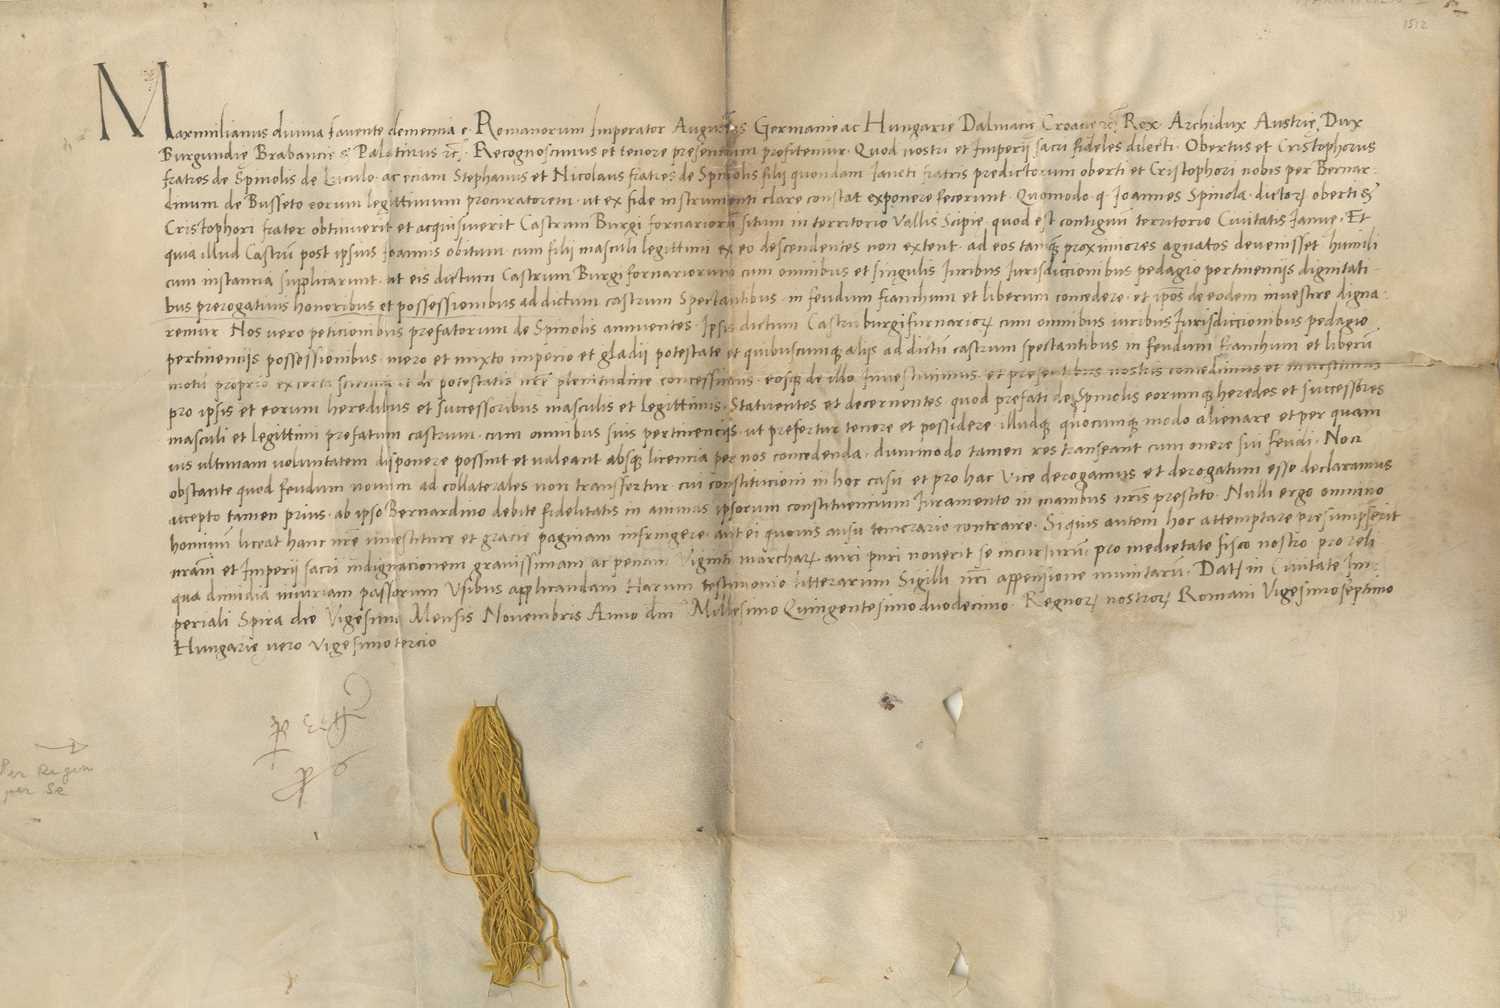 1512
Maximilianus divina favente clementia e. Romanorum Imperator Augustus Germanie ac Hungarie Dalmacie Croacie rc̃ Rex Archidux Austrie Dux
Burgundie Brabancie & Palatinus rc̃. Recognoscimus et tenore presentium profitemur. Quod nostri et Imperii sacri fideles dilecti. Obertus et Cristophorus
fratres de Spinolis de Luculo. ac eciam Stephanus et Nicolaus fratres de Spinolis filii quondam Iancti fratris predictorum oberti et Cristophori nobis per Bernar-
dinum de Busseto eorum legittimum procuratorem. ut ex fide instrumenti clare constat exponere fecerunt. Quomodo q̃ Ioannes Spinola. dictoꝝ oberti &
Cristophori frater obtinverit et acquisiverit Castrum Burgi fornarioruʒ situm in territorio Vallis Scipie. quod est contiguũ territorio Civitatis Ianue. Et
quia illud Castrũ post ipsius Ioannis obitum cum filii masculi legittimi ex eo descendentes non extent. ad eos tanq̃ proximiores agnatos devenisset humili
cum instancia supplicarunt. ut eis dictum Castrum Burgi fornariorum cum omnibus et singulis Iuribus Iurisdiccionibus pedagio pertinenciis dignitati-
bus prerogativis honoribus et possessionibus ad dictum castrum Spectantibus. in feudum franchum et liberum concedere. et ip̃os de eodem investire digna-
remur. Nos vero peticionibus prefatorum de Spinolis annuentes. Ipsis dictum Castrũ burgi furnarioꝝ cum omnibus iuribus Iurisdiccionibus pedagio
pertinenciis possessionibus. mero et mixto imperio et gladii potestate et quibuscumqʒ aliis ad dictũ castrum spectantibus in feudum franchum et liberũ
motu proprio ex certa sciencia et de potestatis nr̃e plenitudine concessimus. eosqʒ de illo Investivimus. et presentibus nostris concedimus et investimus
pro ipsis et eorum heredibus et successoribus masculis et legittimis. Statuentes et decernentes quod prefati de Spinolis eorumqʒ heredes et successores
masculi et legittimi prefatum castrum. cum omnibus suis pertinenciis. ut prefertur tenere et possidere. illudqʒ quocumqʒ modo alienare et per quam
vis ultimam voluntatem disponere possint et valeant absqʒ licencia per nos concedenda. dummodo tamen res transeant cum onere sui feudi. Non
obstante quod feudum novum ad collaterales non transfertur. cui constitucioni in hoc casu et pro hac vice derogamus et derogatum esse declaramus
accepto tamen prius. ab ipso Bernardino debite fidelitatis in animas ipsorum constituencium Iuramento in manibus nr̃is prestito. Nulli ergo omnino
hominũ liceat hanc nr̃e investiture et gracie paginam infringere. aut ei quovis ausu temerario contraire. Si quis autem hoc attemptare presumpserit
nr̃am et Imperii sacri indignacionem gravissimam ac penam Viginti marcharꝝ auri puri noverit se incursurũ. pro medietate fisco nostro pro reli
qua dimidia iniuriam passorum Usibus applicandam Harum testimonio litterarum Sigilli nr̃i appensione munitarũ. Datꝝ in Civitate Im-
periali Spira die Vigesima Mensis Novembris Anno dñi Millesimo Quingentesimo duodecimo. Regnoꝝ nostroꝝ Romani Vigesimoseptimo
Hungarie vero Vigesimotercio
Per Regem
per Se